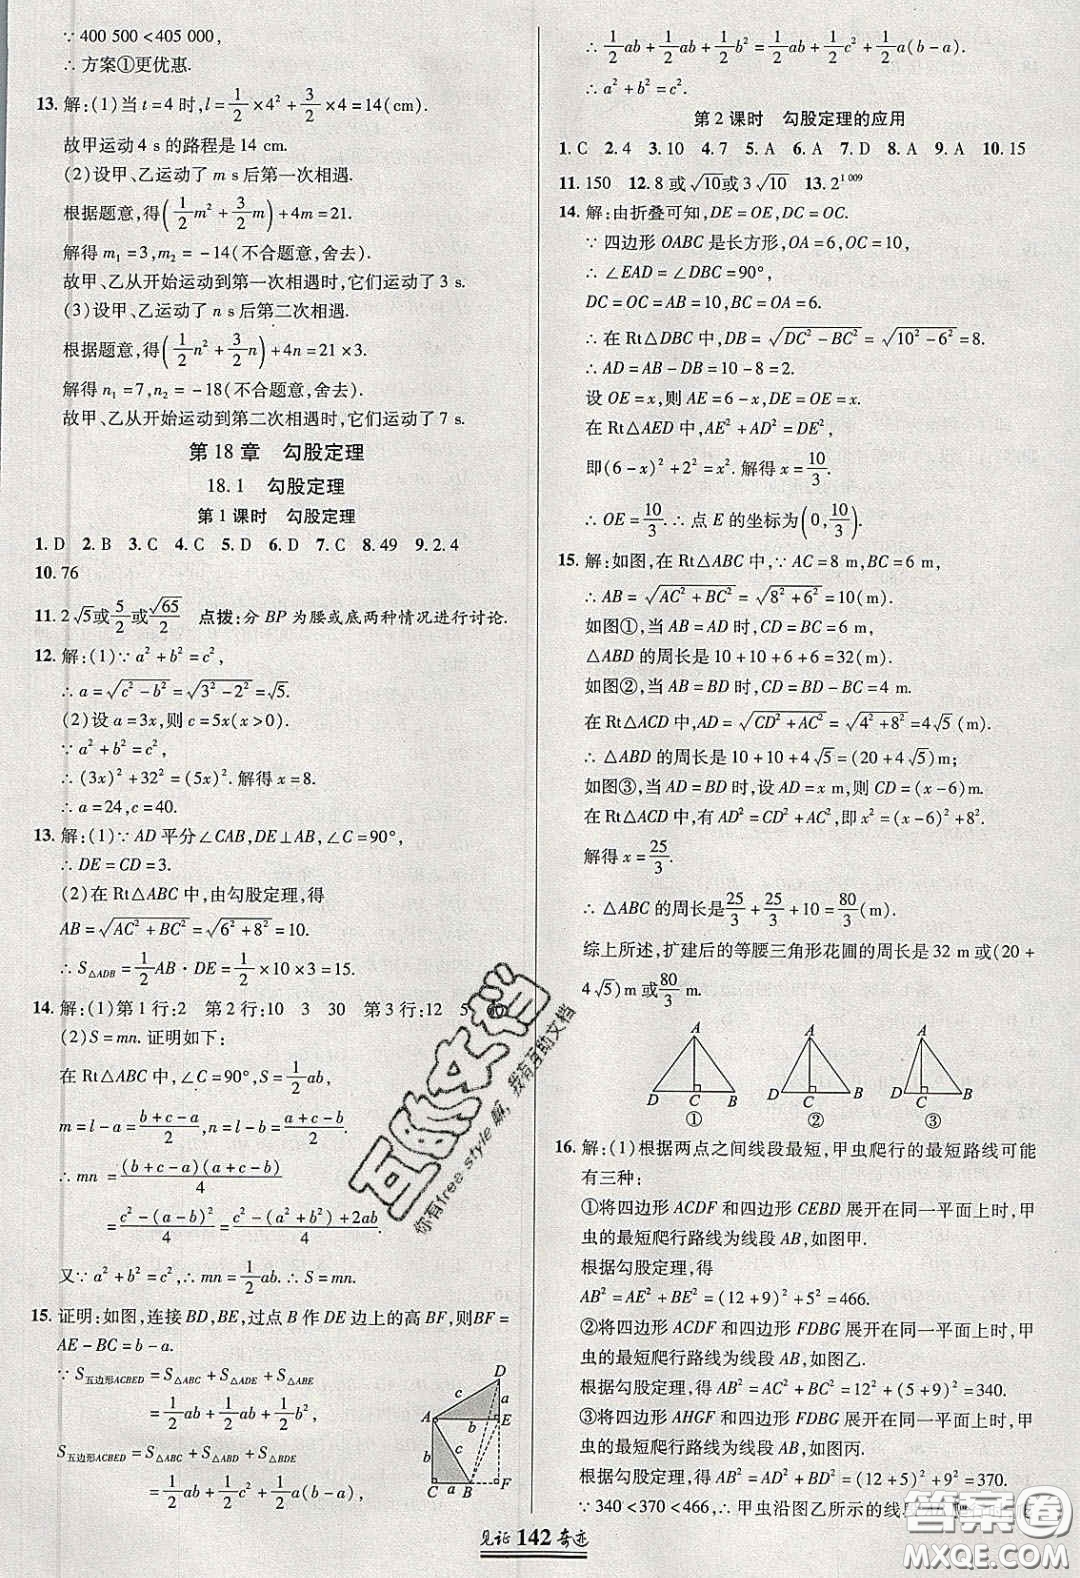 ∵ 400 500<405 000,
∴ 方案①更优惠.
13. 解:(1)当 t=4 时, l=1/2×4²+3/2×4=14(cm).
故甲运动 4 s 的路程是 14 cm.
(2)设甲、乙运动了 m s 后第一次相遇.
根据题意,得(1/2m²+3/2m)+4m=21.
解得 m₁=3,m₂=-14(不合题意,舍去).
故甲、乙从开始运动到第一次相遇时,它们运动了 3 s.
(3)设甲、乙运动了 n s 后第二次相遇.
根据题意,得(1/2n²+3/2n)+4n=21×3.
解得 n₁=7,n₂=-18(不合题意,舍去).
故甲、乙从开始运动到第二次相遇时,它们运动了 7 s.
第 18 章 勾股定理
18.1 勾股定理
第 1 课时 勾股定理
1. D 2. B 3. C 4. C 5. D 6. D 7. C 8. 49 9. 2.4
10. 76
11. 2√5或5/2或√65/2 点拨:分 BP 为腰或底两种情况进行讨论.
12. 解:(1)∵ a²+b²=c²,
∴ a=√(c²-b²)=√(3²-2²)=√5.
(2)设 a=3x,则 c=5x(x>0).
∵ a²+b²=c²,
∴ (3x)²+32²=(5x)². 解得 x=8.
∴ a=24,c=40.
13. 解:(1)∵ AD 平分∠CAB,DE⊥AB,∠C=90°,
∴ DE=CD=3.
(2)在 Rt△ABC 中,由勾股定理,得
AB=√(AC²+BC²)=√(6²+8²)=10.
∴ S△ADB=1/2AB·DE=1/2×10×3=15.
14. 解:(1)第 1 行:2 第 2 行:10 3 30 第 3 行:12 5
(2)S=mn. 证明如下:
在 Rt△ABC 中,∠C=90°,S=1/2ab,
m=l-a=(b+c-a)/2,n=l-b=(a+c-b)/2.
∴ mn=(b+c-a)(a+c-b)/4
=(c²-(a-b)²)/4=(c²-(a²+b²)+2ab)/4.
又∵ a²+b²=c²,∴ mn=1/2ab. ∴ S=mn.
15. 证明:如图,连接 BD,BE,过点 B 作 DE 边上的高 BF,则BF=
AE-BC=b-a.
∵ S五边形ACBED=S△ABC+S△ADE+S△ABE
=1/2ab+1/2ab+1/2b²,
S五边形ACBED=S△ABC+S△ABD+S△BDE
=1/2ab+1/2c²+1/2a(b-a),
D
c a
A b E
b c
C a B F
∴ 1/2ab+1/2ab+1/2b²=1/2ab+1/2c²+1/2a(b-a).
∴ a²+b²=c².
第 2 课时 勾股定理的应用
1. C 2. 4 3. 10 4. 7 5. A 6. A 7. D 8. A 9. A 10. 15
11. 150 12. 8 或√10或 3√10 13. 2¹ ⁰⁰⁹
14. 解:由折叠可知,DE=OE,DC=OC.
∵ 四边形 OABC 是长方形,OA=6,OC=10,
∴ ∠EAD=∠DBC=90°,
DC=OC=AB=10,BC=OA=6.
∴ 在 Rt△DBC 中,DB=√(DC²-BC²)=√(10²-6²)=8.
∴ AD=AB-DB=10-8=2.
设 OE=x,则 AE=6-x,DE=OE=x.
在 Rt△AED 中,AE²+AD²=DE²,
即(6-x)²+2²=x². 解得 x=10/3.
∴ OE=10/3. ∴ 点 E 的坐标为(0,10/3).
15. 解:如图,在 Rt△ABC 中,∵ AC=8 m,BC=6 m,
∴ AB=√(AC²+BC²)=√(8²+6²)=10(m).
如图①,当 AB=AD 时,CD=BC=6 m,
△ABD 的周长是 10+10+6+6=32(m).
如图②,当 AB=BD 时,CD=BD-BC=4 m.
在 Rt△ACD 中,AD=√(CD²+AC²)=√(4²+8²)=4√5(m).
∴ △ABD 的周长是 10+10+4√5=(20+4√5)m;
如图③,当 AD=BD 时,设 AD=x m,则 CD=(x-6)m.
在 Rt△ACD 中,AD²=CD²+AC²,即 x²=(x-6)²+8².
解得 x=25/3.
∴ △ABC 的周长是25/3+25/3+10=80/3(m).
综上所述,扩建后的等腰三角形花圃的周长是 32 m 或(20+
4√5)m 或80/3 m.
A A A
D C B D C B D C B
① ② ③
16. 解:(1)根据两点之间线段最短,甲虫爬行的最短路线可能
有三种:
①将四边形 ACDF 和四边形 CEBD 展开在同一平面上时,甲
虫的最短爬行路线为线段 AB,如图甲.
根据勾股定理,得
AB²=AE²+BE²=(12+9)²+5²=466.
②将四边形 ACDF 和四边形 FDBG 展开在同一平面上时,甲
虫的最短爬行路线为线段 AB,如图乙.
根据勾股定理,得 AB²=AC²+BC²=12²+(5+9)²=340.
③将四边形 AHGF 和四边形 FDBG 展开在同一平面上时,甲
虫的最短爬行路线为线段 AB,如图丙.
根据勾股定理,得 AB²=AD²+BD²=(12+5)²+9²=370.
∵ 340<370<466,∴ 甲虫沿图乙所示的线
见证 142 奇迹
互助文档
我有互助文档
你有free style 嘛,
答案圈
MXQE.COM